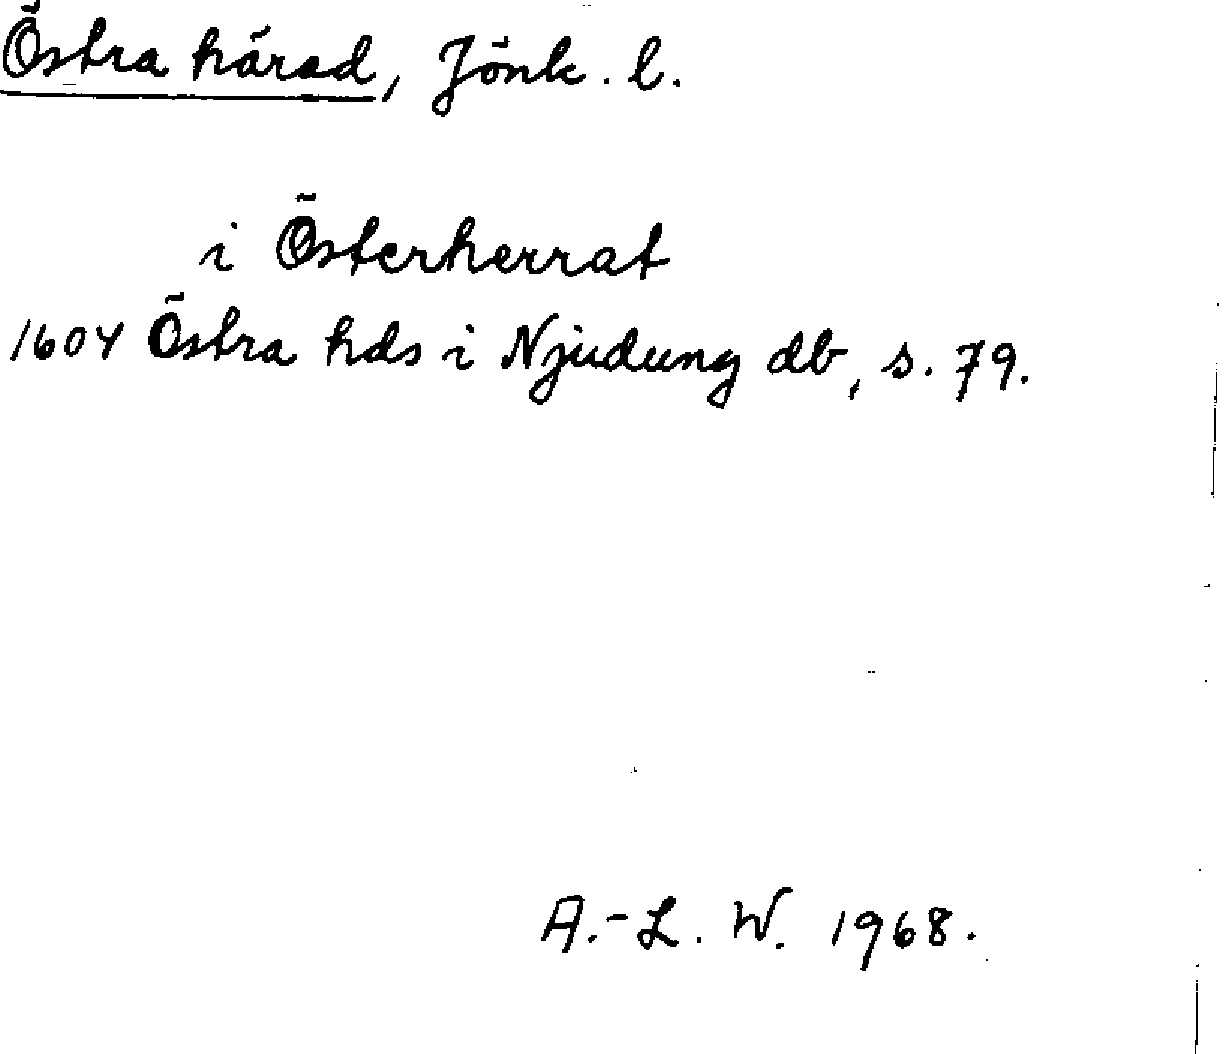 Östra härad, Jönk. l.
i Österherrat
1604 Östra hds i Njudung db, s. 79.
A.-L. W. 1968.